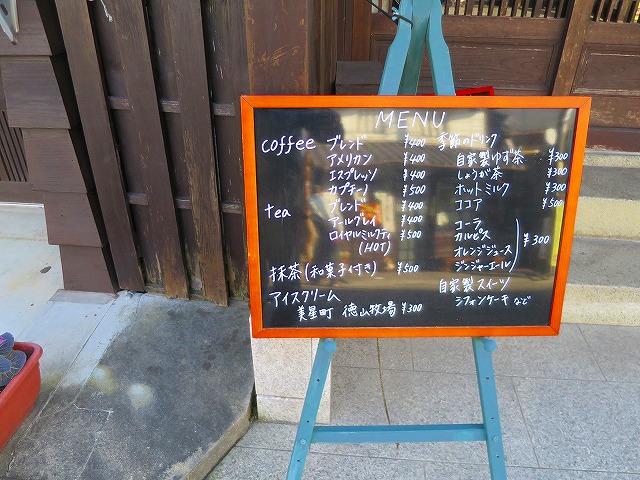 MENU
coffee ブレンド ¥400
アメリカン ¥400
エスプレッソ ¥400
カプチーノ ¥500
tea ブレンド ¥400
アールグレイ ¥400
ロイヤルミルクティ ¥500
(HOT)
抹茶(和菓子付き) ¥500
アイスクリーム
美星町 徳山牧場 ¥300
季節のドリンク
自家製ゆず茶 ¥300
しょうが茶 ¥300
ホットミルク ¥300
ココア ¥500
コーラ
カルピス
オレンジジュース ¥300
ジンジャーエール
自家製スイーツ
シフォンケーキ など